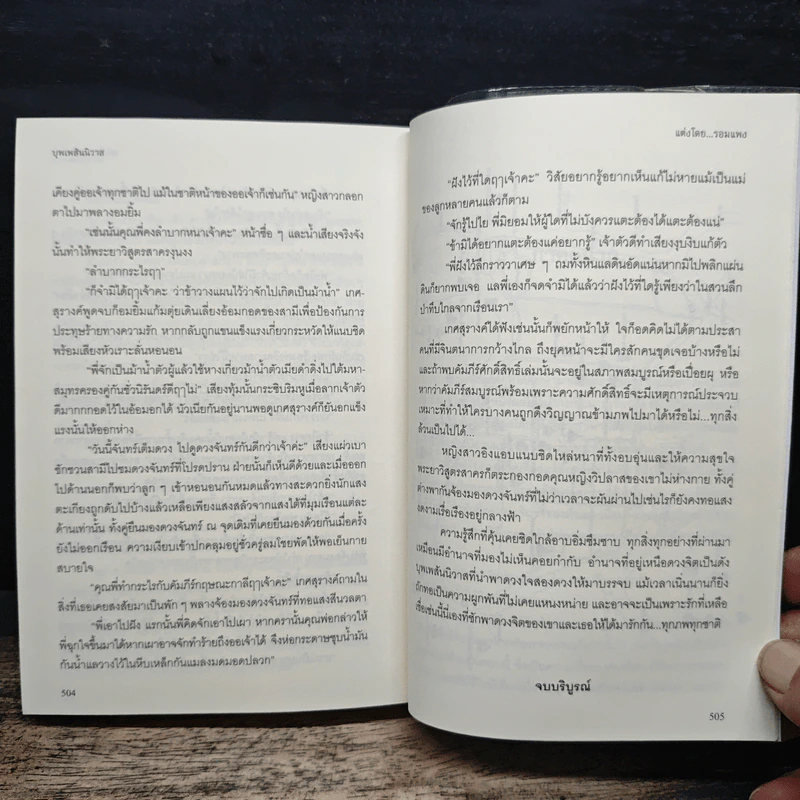 บุพเพสันนิวาส
เคียงคู่ออเจ้าทุกชาติไป แม้ในชาติหน้าของออเจ้าก็เช่นกัน” หญิงสาวกลอก
ตาไปมาพลางอมยิ้ม
“เช่นนั้นคุณพี่คงลำบากหนาเจ้าคะ” หน้าซื่อ ๆ และน้ำเสียงจริงจัง
นั้นทำให้พระยาวิสูตรสาครงุนงง
“ลำบากกระไรฤๅ”
“ก็จำมิได้ฤๅเจ้าคะ ว่าข้าวางแผนไว้ว่าจักไปเกิดเป็นม้าน้ำ” เกศ
สุรางค์พูดจบก็อมยิ้มแก้มตุ่ยเดินเลี่ยงอ้อมกอดของสามีเพื่อป้องกันการ
ประทุษร้ายทางความรัก หากกลับถูกแขนแข็งแรงเกี่ยวกระหวัดให้แนบชิด
พร้อมเสียงหัวเราะลั่นหอนอน
“พี่จักเป็นม้าน้ำตัวผู้แล้วใช้หางเกี่ยวม้าน้ำตัวเมียดำดิ่งไปใต้มหา-
สมุทรครองคู่กันชั่วนิรันดร์ดีฤๅไม่” เสียงทุ้มนั้นกระซิบริมหูเมื่อลากเจ้าตัว
ดีมากกกอดไว้ในอ้อมอกได้ นัวเนียกันอยู่นานพอดูเกศสุรางค์ก็ยันอกแข็ง
แรงนั้นให้ออกห่าง
“วันนี้จันทร์เต็มดวง ไปดูดวงจันทร์กันดีกว่าเจ้าค่ะ” เสียงแผ่วเบา
ชักชวนสามีไปชมดวงจันทร์ที่โปรดปราน ฝ่ายนั้นก็เห็นดีด้วยและเมื่อออก
ไปด้านนอกก็พบว่าลูก ๆ เข้าหอนอนกันหมดแล้วทางสะดวกยิ่งนักแสง
ตะเกียงถูกดับไปบ้างแล้วเหลือเพียงแสงสลัวจากแสงใต้ที่มุมเรือนแต่ละ
ด้านเท่านั้น ทั้งคู่ยืนมองดวงจันทร์ ณ จุดเดิมที่เคยยืนมองด้วยกันเมื่อครั้ง
ยังไม่ออกเรือน ความเงียบเข้าปกคลุมอยู่ชั่วครู่ลมโชยพัดให้พอเย็นกาย
สบายใจ
“คุณพี่ทำกระไรกับคัมภีร์กฤษณะกาลีฤๅเจ้าคะ” เกศสุรางค์ถามใน
สิ่งที่เธอเคยสงสัยมาเป็นพัก ๆ พลางจ้องมองดวงจันทร์ที่ทอแสงสีนวลตา
“พี่เอาไปฝัง แรกนั้นพี่คิดจักเอาไปเผา หากครานั้นคุณพ่อกล่าวให้
พี่ฉุกใจขึ้นมาได้หากเผาอาจจักทำร้ายถึงออเจ้าได้ จึงห่อกระดาษชุบน้ำมัน
กันน้ำแลวางไว้ในหีบเหล็กกันแมลงมดมอดปลวก”
504
แต่งโดย...รอมแพง
“ฝังไว้ที่ใดฤๅเจ้าคะ” วิสัยอยากรู้อยากเห็นแก้ไม่หายแม้เป็นแม่
ของลูกหลายคนแล้วก็ตาม
“จักรู้ไปไย พี่มิยอมให้ผู้ใดที่ไม่บังควรแตะต้องได้แตะต้องแน่”
“ข้ามิได้อยากแตะต้องแค่อยากรู้” เจ้าตัวดีทำเสียงงุบงิบแก้ตัว
“พี่ฝังไว้ลึกราววาเศษ ๆ ถมทั้งหินแลดินอัดแน่นหากมิไปพลิกแผ่น
ดินก็ยากพบเจอ แลพี่เองก็จดจำมิได้แล้วว่าฝังไว้ที่ใดรู้เพียงว่าในสวนลึก
ป่าทึบไกลจากเรือนเรา”
เกศสุรางค์ได้ฟังเช่นนั้นก็พยักหน้าให้ ใจก็อดคิดไม่ได้ตามประสา
คนที่มีจินตนาการกว้างไกล ถึงยุคหน้าจะมีใครสักคนขุดเจอบ้างหรือไม่
และถ้าพบคัมภีร์ศักดิ์สิทธิ์เล่มนั้นจะอยู่ในสภาพสมบูรณ์หรือเปื่อยผุ หรือ
หากว่าคัมภีร์สมบูรณ์พร้อมเพราะความศักดิ์สิทธิ์จะมีเหตุการณ์ประจวบ
เหมาะที่ทำให้ใครบางคนถูกดึงวิญญาณข้ามภพไปมาได้หรือไม่...ทุกสิ่ง
ล้วนเป็นไปได้...
หญิงสาวอิงแอบแนบชิดไหล่หนาที่ทั้งอบอุ่นและให้ความสุขใจ
พระยาวิสูตรสาครก็ตระกองกอดคุณหญิงวิปลาสของเขาไม่ห่างกาย ทั้งคู่
ต่างพากันจ้องมองดวงจันทร์ที่ไม่ว่าเวลาจะผันผ่านไปเช่นไรก็ยังคงทอแสง
งดงามเรื่อเรืองอยู่กลางฟ้า
ความรู้สึกที่คุ้นเคยชิดใกล้อาบอิ่มซึมซาบ ทุกสิ่งทุกอย่างที่ผ่านมา
เหมือนมีอำนาจที่มองไม่เห็นคอยกำกับ อำนาจที่อยู่เหนือดวงจิตเป็นดัง
บุพเพสันนิวาสที่นำพาดวงใจสองดวงให้มาบรรจบ แม้เวลาเนิ่นนานก็ยิ่ง
ถักทอเป็นความผูกพันที่ไม่เคยแหนงหน่าย และอาจจะเป็นเพราะรักที่เหลือ
เชื่อเช่นนี้นี่เองที่ชักพาดวงจิตของเขาและเธอให้ได้มารักกัน...ทุกภพทุกชาติ
จบบริบูรณ์
505